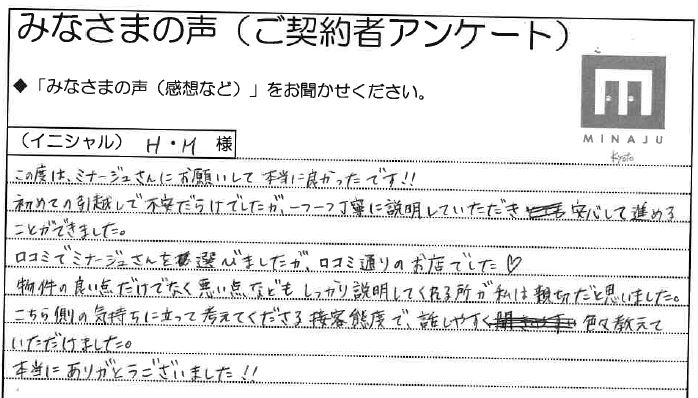 みなさまの声（ご契約者アンケート）
◆「みなさまの声（感想など）」をお聞かせください。
MINAJU
Kyoto
（イニシャル） H・M 様
この度は、ミナージュさんにお願いして本当に良かったです!!
初めての引越しで不安だらけでしたが、一つ一つ丁寧に説明していただき 安心して進める
ことができました。
口コミでミナージュさんを選びましたが、口コミ通りのお店でした♡
物件の良い点だけでなく悪い点などもしっかり説明してくれる所が私は親切だと思いました。
こちら側の気持ちに立って考えてくださる接客態度で、話しやすく 色々教えて
いただけました。
本当にありがとうございました!!